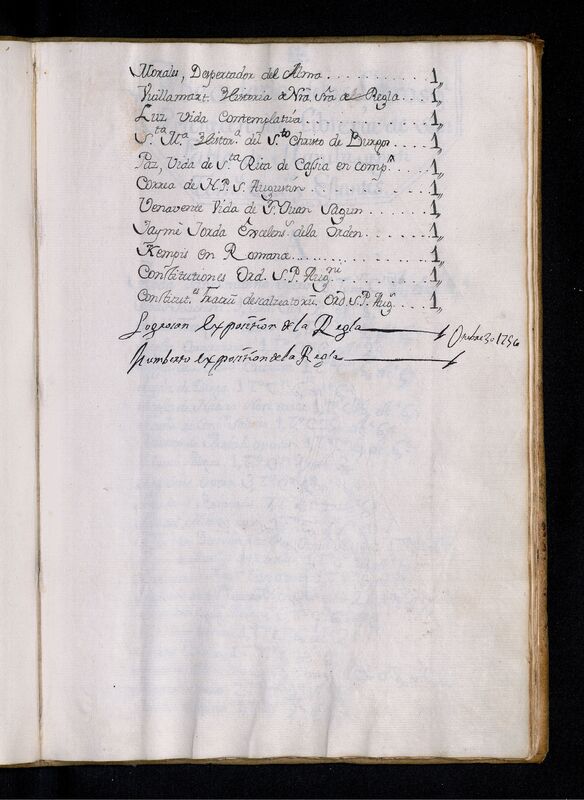 Morales, Despertador del Alma . . . . . . . . . . . . 1,,
Vuillamart. Historia de Nrã. Srã del Regla . . . 1,,
Luz Vida Contemplativa . . . . . . . . . . . . . . . 1,,
S.ta M.a Histor.a del S.to Christo de Burgos 1,,
Paz, Vida de S.ta Rita de Cassia en comp.a 1,,
Correa de N. P. S. Augustin . . . . . . . . . . . . 1,,
Venavente Vida de S. Juan Sagun . . . . . . 1,,
Jayme Jorda Excelens.s dela Orden . . . . . . 1,,
Kempis en Romanze . . . . . . . . . . . . . . . . 1,,
Constitutiones Ord. S. P. Aug.ni . . . . . . . . . 1,,
Constitut.s Fratrũ descalzeatorũ. Ord. S. P. Aug. 1,,
Logrosan Exposition de la Regla 1 Otubre 30 1756
Humberto Exposition de la Regla 1